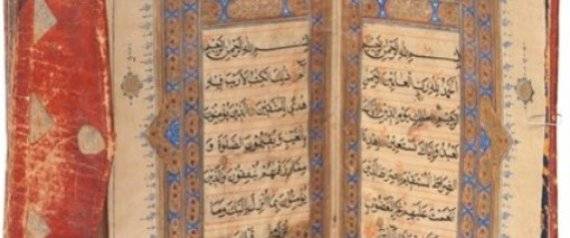 بِسْمِ اللهِ الرَّحْمٰنِ الرَّحِيمِ
الْحَمْدُ لِلّٰهِ رَبِّ الْعَالَمِينَ الرَّحْمٰنِ
الرَّحِيمِ مٰلِكِ يَوْمِ الدِّينِ إِيَّاكَ
نَعْبُدُ وَإِيَّاكَ نَسْتَعِينُ اهْدِنَا
الصِّرَاطَ الْمُسْتَقِيمَ صِرَاطَ الَّذِينَ
أَنْعَمْتَ عَلَيْهِمْ غَيْرِ الْمَغْضُوبِ
بِسْمِ اللهِ الرَّحْمٰنِ الرَّحِيمِ
الم ذٰلِكَ الْكِتٰبُ لَا رَيْبَ فِيهِ
هُدًى لِلْمُتَّقِينَ الَّذِينَ يُؤْمِنُونَ
بِالْغَيْبِ وَيُقِيمُونَ الصَّلٰوةَ وَ
مِمَّا رَزَقْنٰهُمْ يُنْفِقُونَ وَالَّذِينَ
يُؤْمِنُونَ بِمَا أُنْزِلَ إِلَيْكَ وَمَا